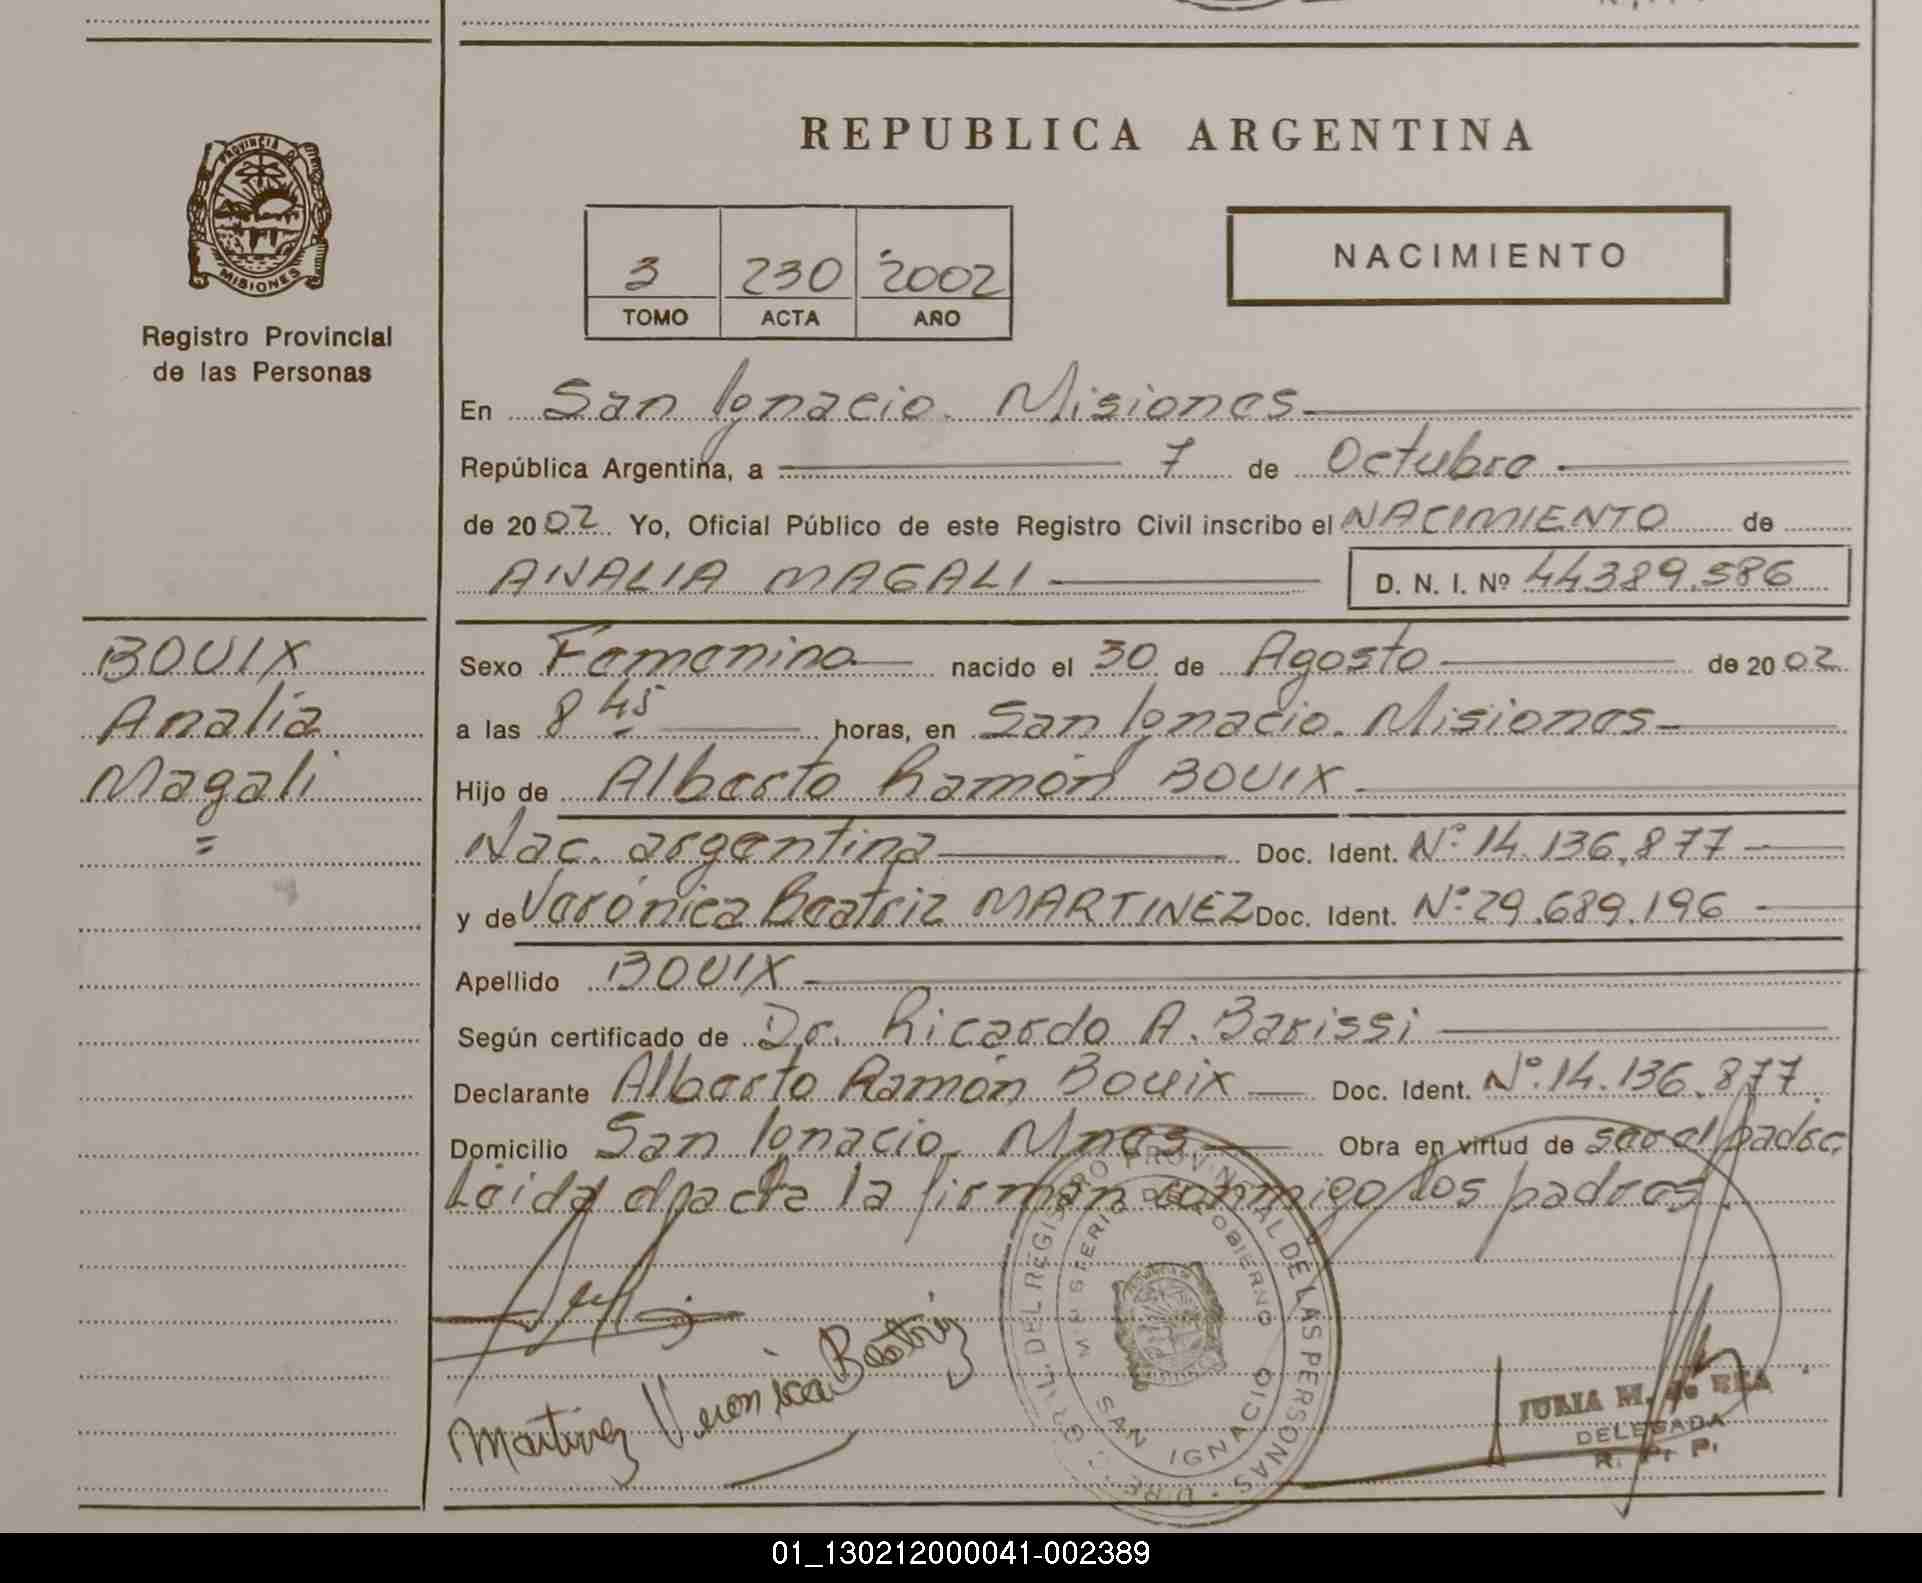 REPUBLICA ARGENTINA
PROVINCIA DE
MISIONES
Registro Provincial
de las Personas
3 230 2002
TOMO ACTA AÑO
NACIMIENTO
En San Ignacio. Misiones
República Argentina, a 7 de Octubre
de 2002 Yo, Oficial Público de este Registro Civil inscribo el NACIMIENTO de
ANALIA MAGALI D. N. I. Nº 44.389.586
BOUIX
Analia
Magali
=
Sexo Femenino nacido el 30 de Agosto de 2002
a las 8 45 horas, en San Ignacio. Misiones
Hijo de Alberto Ramón BOUIX
Nac. argentina Doc. Ident. Nº 14.136.877
y de Verónica Beatriz MARTINEZ Doc. Ident. Nº 29.689.196
Apellido BOUIX
Según certificado de Dr. Ricardo A. Barissi
Declarante Alberto Ramón Bouix Doc. Ident. Nº 14.136.877
Domicilio San Ignacio Mnes Obra en virtud de ser el padre,
Leida el acta la firman conmigo los padres
Martinez Veronica Beatriz
REGISTRO PROVINCIAL DE LAS PERSONAS
MINISTERIO DE GOBIERNO
SAN IGNACIO
DELEGADA
R. P. P.
01_130212000041-002389